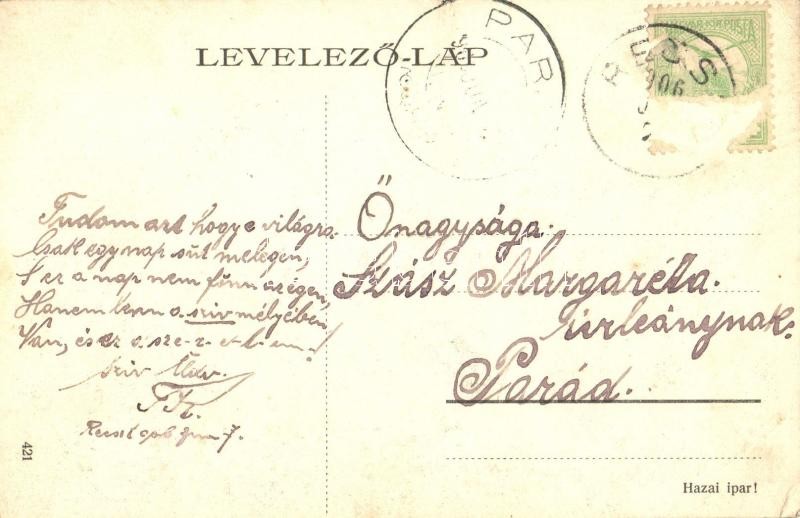 LEVELEZŐ-LAP
PAR
906
Tudom azt hogy e világra
Csak egy nap süt melegen,
S ez a nap nem fönn az égen,
Hanem lenn a sziv mélyében
Van, és ez a sze-r-e-l-em!
Sziv Üdv.
Recsk 906 jun 7.
Őnagysága
Szász Margaréta
úrleánynak
Parád.
421
Hazai ipar!